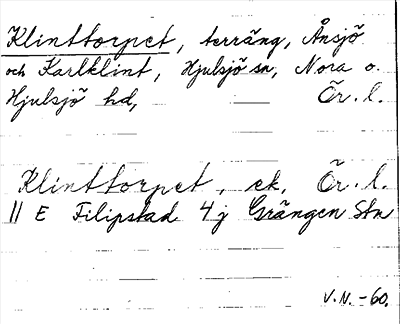 Klinttorpet, terräng, Ånsjö
och Karlklint, Hjulsjö sn, Nora o.
Hjulsjö hd, Ör. l.
Klinttorpet, ek. Ör. l.
11 E Filipstad 4 j Grängen Stn
V.N. -60.